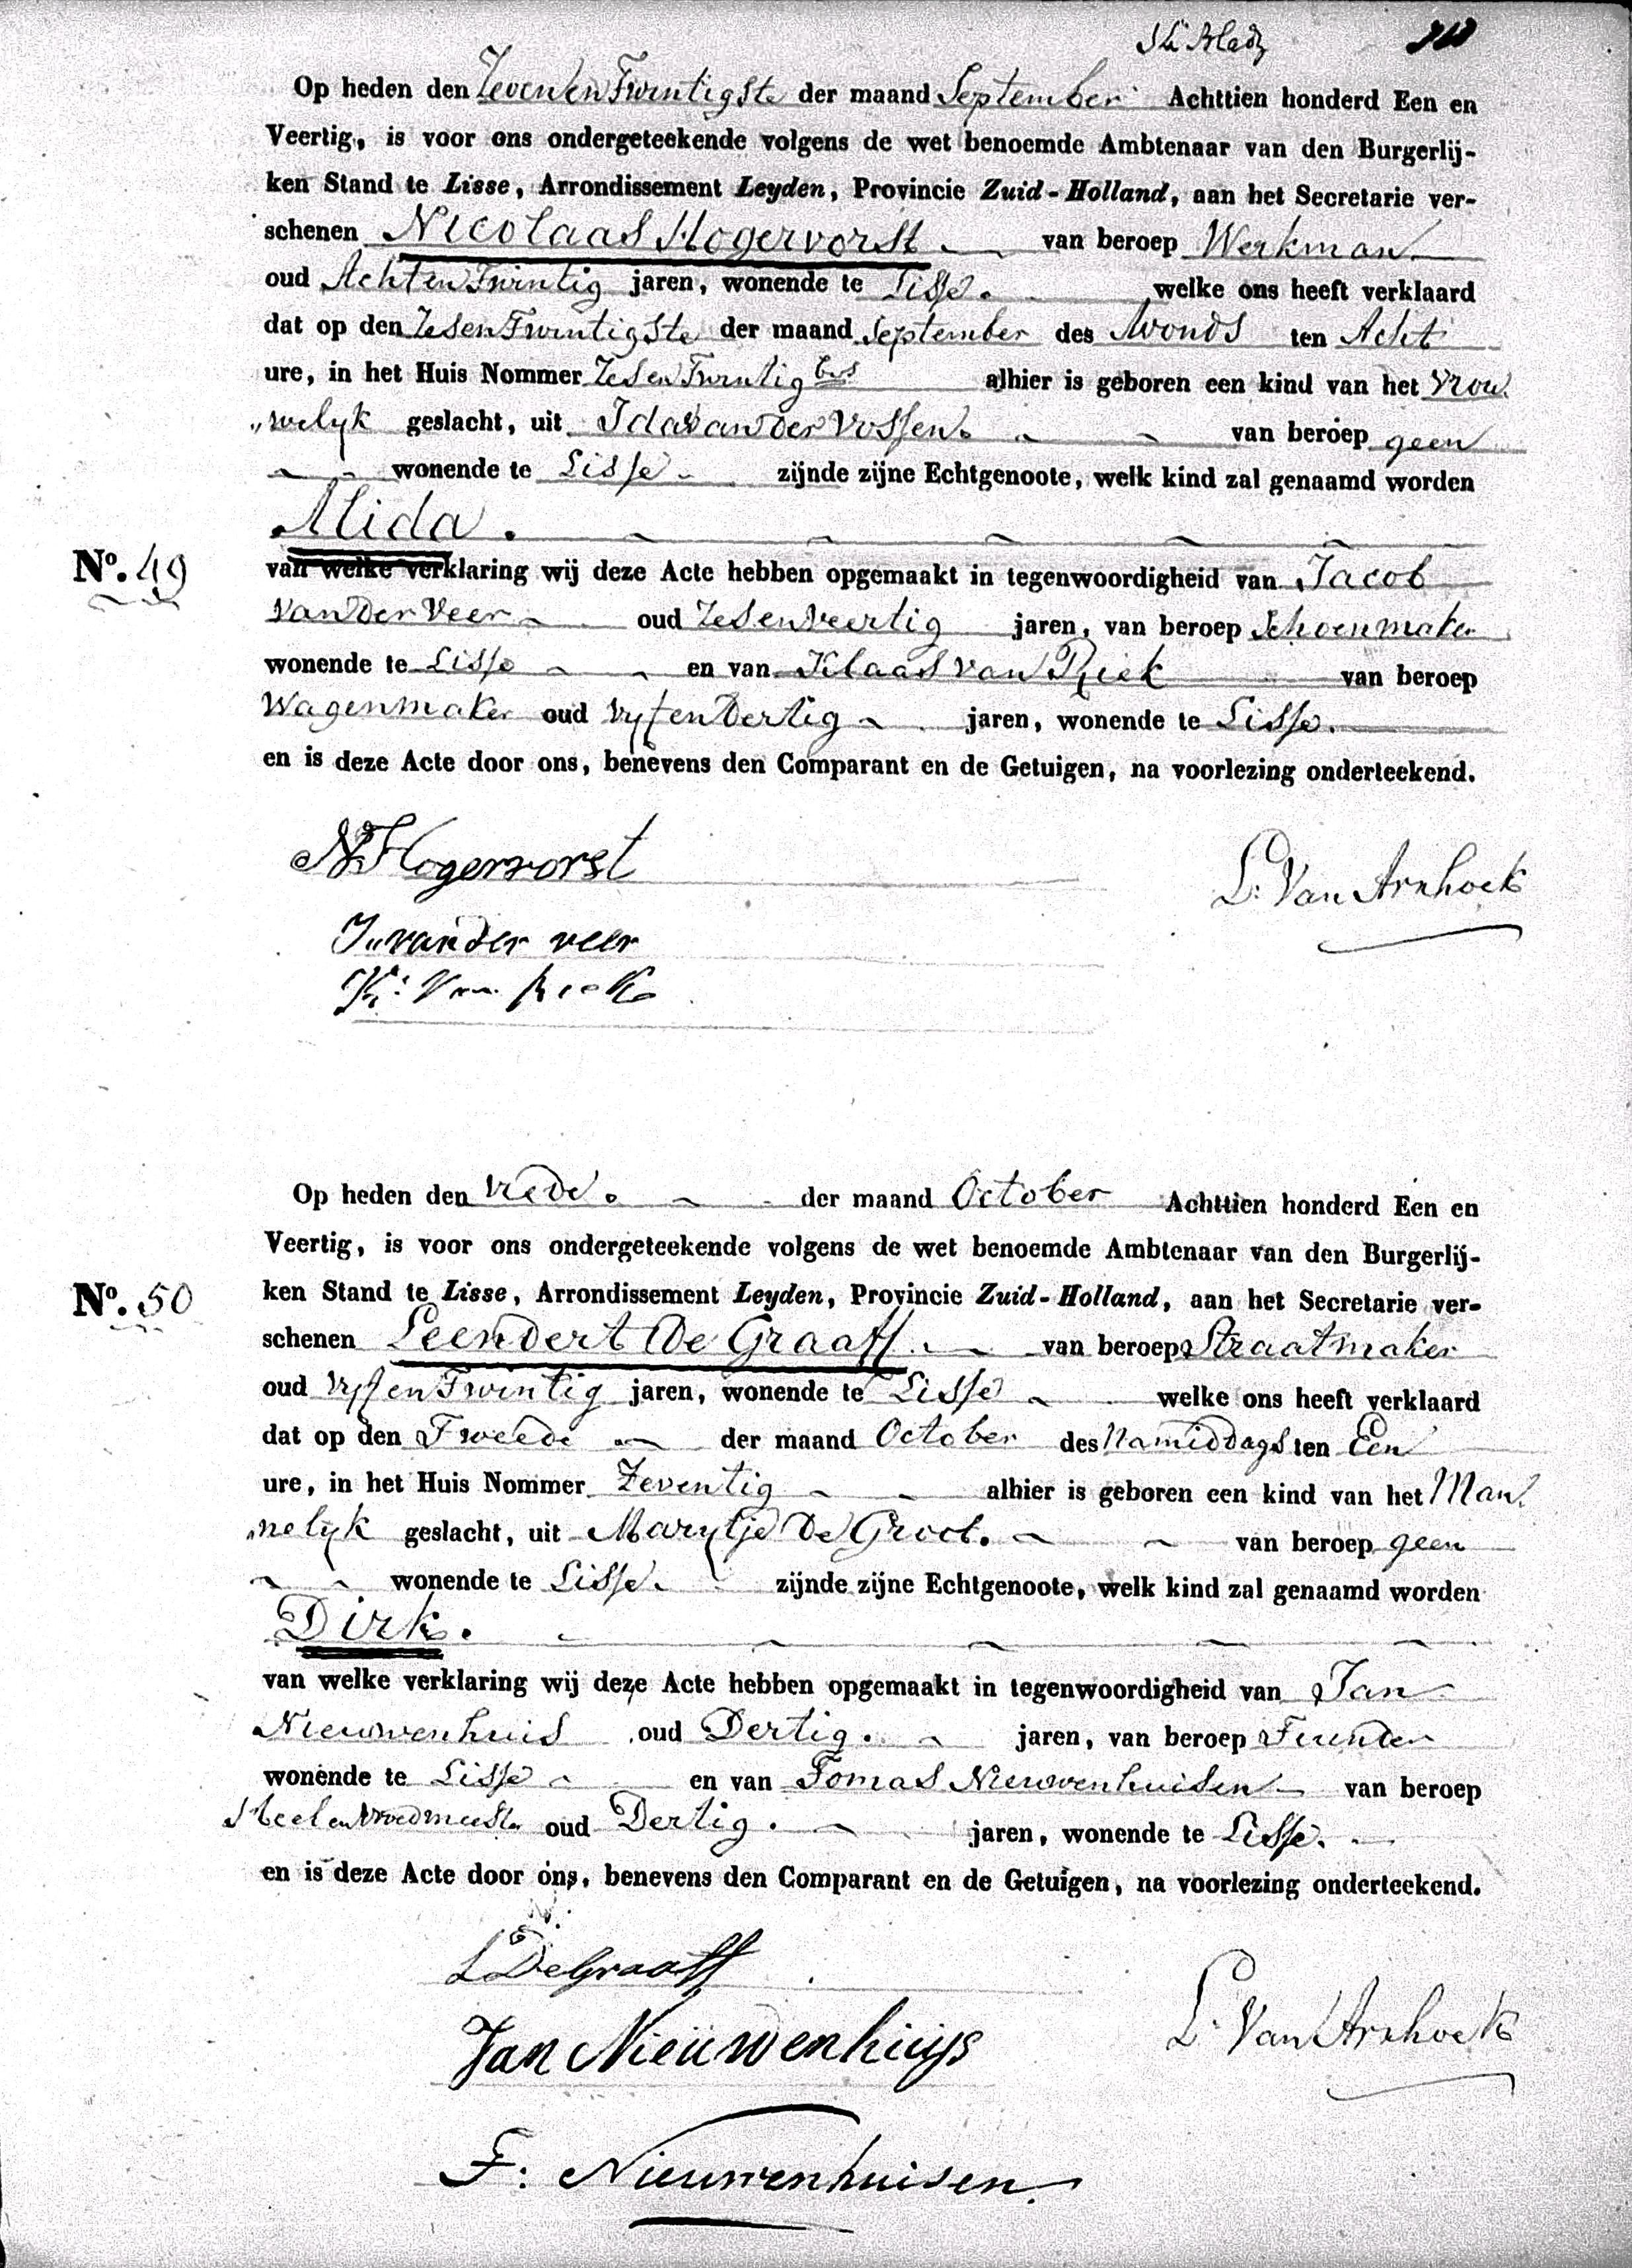 Op heden den Zeven en Twintigste der maand September Achttien honderd Een en
Veertig, is voor ons ondergeteekende volgens de wet benoemde Ambtenaar van den Burgerlij-
ken Stand te Lisse, Arrondissement Leyden, Provincie Zuid-Holland, aan het Secretarie ver-
schenen Nicolaas Hogervorst van beroep Werkman
oud Acht en Twintig jaren, wonende te Lisse. welke ons heeft verklaard
dat op den Zes en Twintigste der maand September des Avonds ten Acht
ure, in het Huis Nommer Zes en Twintig bis alhier is geboren een kind van het Vrou
„welyk geslacht, uit Ida van der Vossen. van beroep geen
wonende te Lisse zijnde zijne Echtgenoote, welk kind zal genaamd worden
Alida.
No. 49
van welke verklaring wij deze Acte hebben opgemaakt in tegenwoordigheid van Jacob
van der Veer oud Zes en Veertig jaren, van beroep Schoenmaker
wonende te Lisse en van Klaas van Riek van beroep
Wagenmaker oud Vyf en Dertig jaren, wonende te Lisse.
en is deze Acte door ons, benevens den Comparant en de Getuigen, na voorlezing onderteekend.
N Hogervorst
L: Van Arnhoek
J„ van der veer
K: Van Riek
Op heden den Vierde. der maand October Achttien honderd Een en
Veertig, is voor ons ondergeteekende volgens de wet benoemde Ambtenaar van den Burgerlij-
No. 50
ken Stand te Lisse, Arrondissement Leyden, Provincie Zuid-Holland, aan het Secretarie ver-
schenen Leendert De Graaff. van beroep Straatmaker
oud Vyf en Twintig jaren, wonende te Lisse welke ons heeft verklaard
dat op den Tweede der maand October des Namiddags ten Een
ure, in het Huis Nommer Zeventig alhier is geboren een kind van het Man
„nelyk geslacht, uit Marytje De Groot. van beroep geen
wonende te Lisse. zijnde zijne Echtgenoote, welk kind zal genaamd worden
Dirk.
van welke verklaring wij deze Acte hebben opgemaakt in tegenwoordigheid van Jan
Nieuwenhuis oud Dertig. jaren, van beroep
wonende te Lisse en van Tomas Nieuwenhuisen van beroep
Heel en Vroedmeester oud Dertig. jaren, wonende te Lisse.
en is deze Acte door ons, benevens den Comparant en de Getuigen, na voorlezing onderteekend.
L De Graaff
L: Van Arnhoek
Jan Nieuwenhuys
T: Nieuwenhuisen.